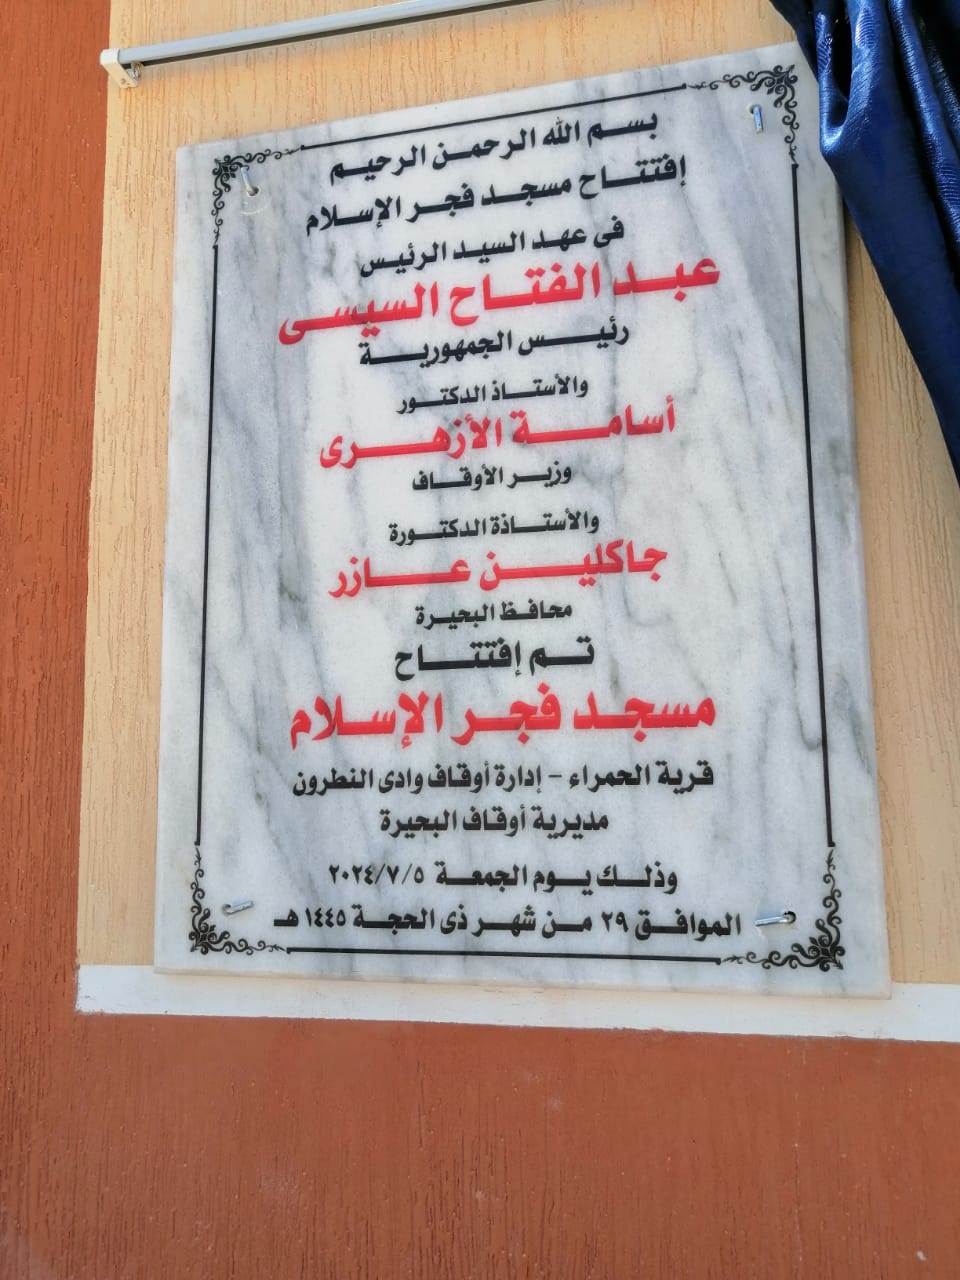 بسم الله الرحمن الرحيم
إفتتاح مسجد فجر الإسلام
فى عهد السيد الرئيس
عبد الفتاح السيسى
رئيس الجمهورية
والأستاذ الدكتور
أسامة الأزهرى
وزير الأوقاف
والأستاذة الدكتورة
جاكلين عازر
محافظ البحيرة
تم إفتتاح
مسجد فجر الإسلام
قرية الحمراء - إدارة أوقاف وادى النطرون
مديرية أوقاف البحيرة
وذلك يوم الجمعة ٢٠٢٤/٧/٥
الموافق ٢٩ من شهر ذى الحجة ١٤٤٥ هـ